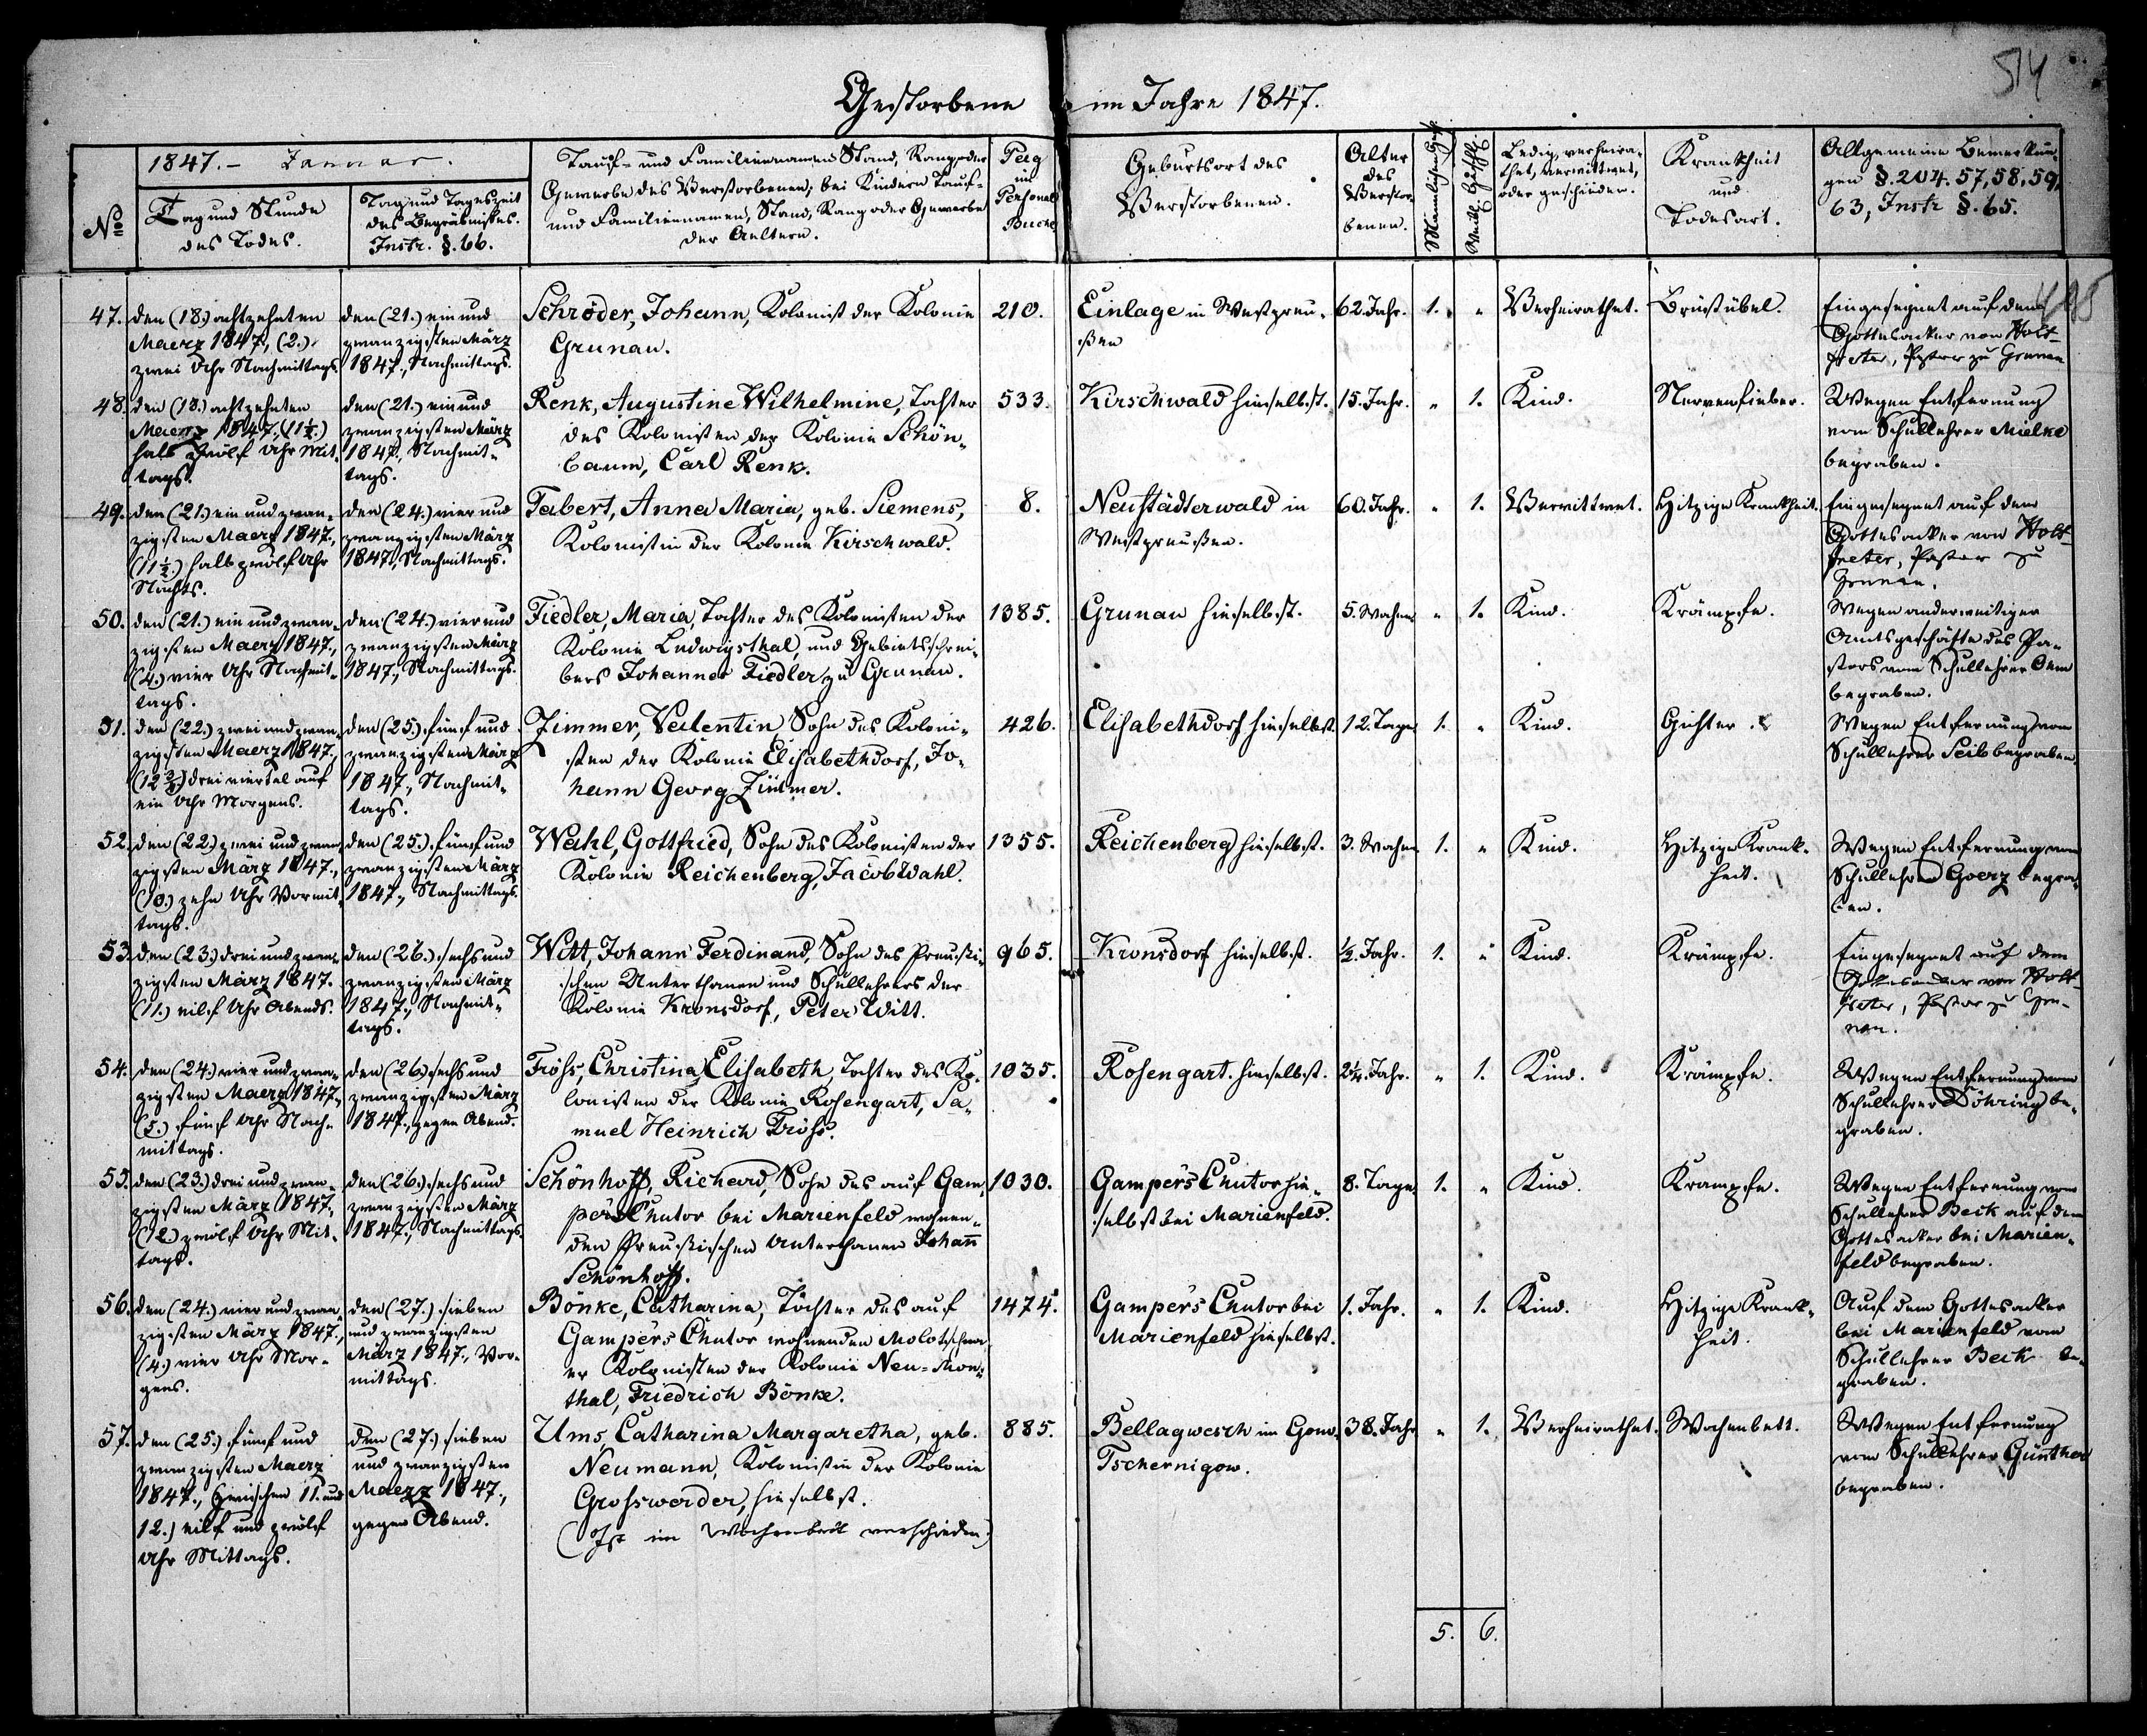 514
Gestorbene im Jahre 1847.
No
1847. - Januar.
Tag und Stunde
des Todes.
Tag und Tageszeit
des Begräbnißes.
Instr. §. 66.
Tauf- und Familiennamen, Stand, Rang oder
Gewerbe des Verstorbenen; bei Kindern Tauf-
und Familiennamen, Stand, Rang oder Gewerbe
der Aeltern.
Pag
im
Personal
Buche
Geburtsort des
Verstorbenen.
Alter
des
Verstor-
benen.
Männlichen Geschl.
Weibl. Geschl.
Ledig, verheira-
thet, verwittwet,
oder geschieden.
Krankheit
und
Todesart.
Allgemeine Bemerkun-
gen §. 204. 57, 58, 59,
63, Instr §. 65.
47.
den (18.) achtzehnten
Maerz 1847, (2.)
zwei Uhr Nachmittags.
den (21.) ein und
zwanzigsten März
1847., Nachmittags.
Schröder, Johann, Kolonist der Kolonie
Grunau.
210.
Einlage in Westpreu-
ßen
62. Jahr.
1.
"
Verheirathet.
Brustübel.
Eingesegnet auf dem
Gottesacker von Holt-
freter, Pastor zu Grunau
48.
den (18.) achtzehnten
Maerz 1847, (11½.)
halb zwölf Uhr Mit-
tags.
den (21.) ein und
zwanzigsten März
1847., Nachmit-
tags.
Renk, Augustine Wilhelmine, Tochter
des Kolonisten der Kolonie Schön-
baum, Carl Renk.
533.
Kirschwald hieselbst.
15. Jahr.
"
1.
Kind.
Nervenfieber.
Wegen Entfernung
vom Schullehrer Mielke
begraben.
49.
den (21.) ein und zwan-
zigsten Maerz 1847.,
(11½.) halb zwölf Uhr
Nachts.
den (24.) vier und
zwanzigsten März
1847., Nachmittags.
Tabert, Anna Maria, geb. Siemens,
Kolonistin der Kolonie Kirschwald.
8.
Neustädterwald in
Westpreußen.
60. Jahr.
"
1.
Verwittwet.
Hitzige Krankheit.
Eingesegnet auf dem
Gottesacker von Holt-
freter, Pastor zu
Grunau.
50.
den (21.) ein und zwan-
zigsten Maerz 1847.,
(4.) vier Uhr Nachmit-
tags.
den (24.) vier und
zwanzigsten März
1847., Nachmittags.
Tiedler, Maria, Tochter des Kolonisten der
Kolonie Ludwigsthal, und Gebietsschrei-
bers Johannes Fiedler zu Grunau.
1385.
Grunau hieselbst.
5. Wochen
"
1.
Kind.
Krämpfe.
Wegen anderweitiger
Amtsgeschäfte des Pa-
stors vom Schullehrer
begraben.
51.
den (22.) zwei und zwan-
zigsten Maerz 1847.,
(12¾.) drei viertel auf
ein Uhr Morgens.
den (25.) fünf und
zwanzigsten März
1847., Nachmit-
tags.
Zimmer, Valentin, Sohn des Koloni-
sten der Kolonie Elisabethdorf, Jo-
hann Georg Zimmer.
426.
Elisabethdorf hieselbst.
12. Tage
1.
"
Kind.
Gichter.
Wegen Entfernung vom
Schullehrer Seib begraben.
52.
den (22.) zwei und zwan-
zigsten März 1847.,
(10.) zehn Uhr Vormit-
tags.
den (25.) fünf und
zwanzigsten März
1847., Nachmittags.
Wahl, Gottfried, Sohn des Kolonisten der
Kolonie Reichenberg, Jacob Wahl.
1355.
Reichenberg hieselbst.
3. Wochen
1.
"
Kind.
Hitzige Krank-
heit.
Wegen Entfernung vom
Schullehrer Goerz begra-
ben.
53.
den (23.) drei und zwan-
zigsten März 1847.
(11.) eilf Uhr Abends.
den (26.) sechs und
zwanzigsten März
1847., Nachmit-
tags.
Witt, Johann Ferdinand, Sohn des Preußi-
schen Unterthanen und Schullehrers der
Kolonie Kronsdorf, Peter Witt.
965.
Kronsdorf hieselbst.
½. Jahr.
1.
"
Kind.
Krämpfe.
Eingesegnet auf dem
Gottesacker von Holt-
freter, Pastor zu Gru-
nau.
54.
den (24.) vier und zwan-
zigsten Maerz 1847.,
(5.) fünf Uhr Nach-
mittags.
den (26.) sechs und
zwanzigsten März
1847., gegen Abend.
Fröhs, Christina Elisabeth, Tochter des Ko-
lonisten der Kolonie Rosengart, Sa-
muel Heinrich Fröhs.
1035.
Rosengart hieselbst.
2¼. Jahr.
"
1.
Kind.
Krämpfe.
Wegen Entfernung vom
Schullehrer Döhring be-
graben.
55.
den (23.) drei und zwan-
zigsten März 1847.,
(12.) zwölf Uhr Mit-
tags.
den (26.) sechs und
zwanzigsten März
1847., Nachmittags.
Schönhoff, Richard, Sohn des auf Gam-
pers Chutor bei Marienfeld wohnen-
den Preußischen Unterthanen Johann
Schönhoff.
1030.
Gampers Chutor hie-
selbst bei Marienfeld.
8. Tage.
1.
"
Kind.
Krampfe.
Wegen Entfernung vom
Schullehrer Beck auf dem
Gottesacker bei Marien-
feld begraben.
56.
den (24.) vier und zwan-
zigsten März 1847.,
(4.) vier Uhr Mor-
gens.
den (27.) sieben
und zwanzigsten
März 1847., Vor-
mittags.
Bönke, Catharina, Tochter des auf
Gampers Chutor wohnenden Molotschna-
er Kolonisten der Kolonie Neu-Mon-
thal, Friedrich Bönke.
1474.
Gampers Chutor bei
Marienfeld hieselbst.
1. Jahr.
"
1.
Kind.
Hitzige Krank-
heit.
Auf dem Gottesacker
bei Marienfeld vom
Schullehrer Beck be-
graben.
57.
den (25.) fünf und
zwanzigsten Maerz
1847., (zwischen 11. und
12.) eilf und zwölf
Uhr Mittags.
den (27.) sieben
und zwanzigsten
Maerz 1847.,
gegen Abend.
Ums, Catharina Margaretha, geb.
Neumann, Kolonistin der Kolonie
Grosswerder, hieselbst.
(Ist im Wochenbett verschieden.)
885.
Bellagwesch im Gouv.
Tschernigow.
38. Jahr
"
1.
Verheirathet.
Wochenbett.
Wegen Entfernung
vom Schullehrer Günther
begraben.
5.
6.